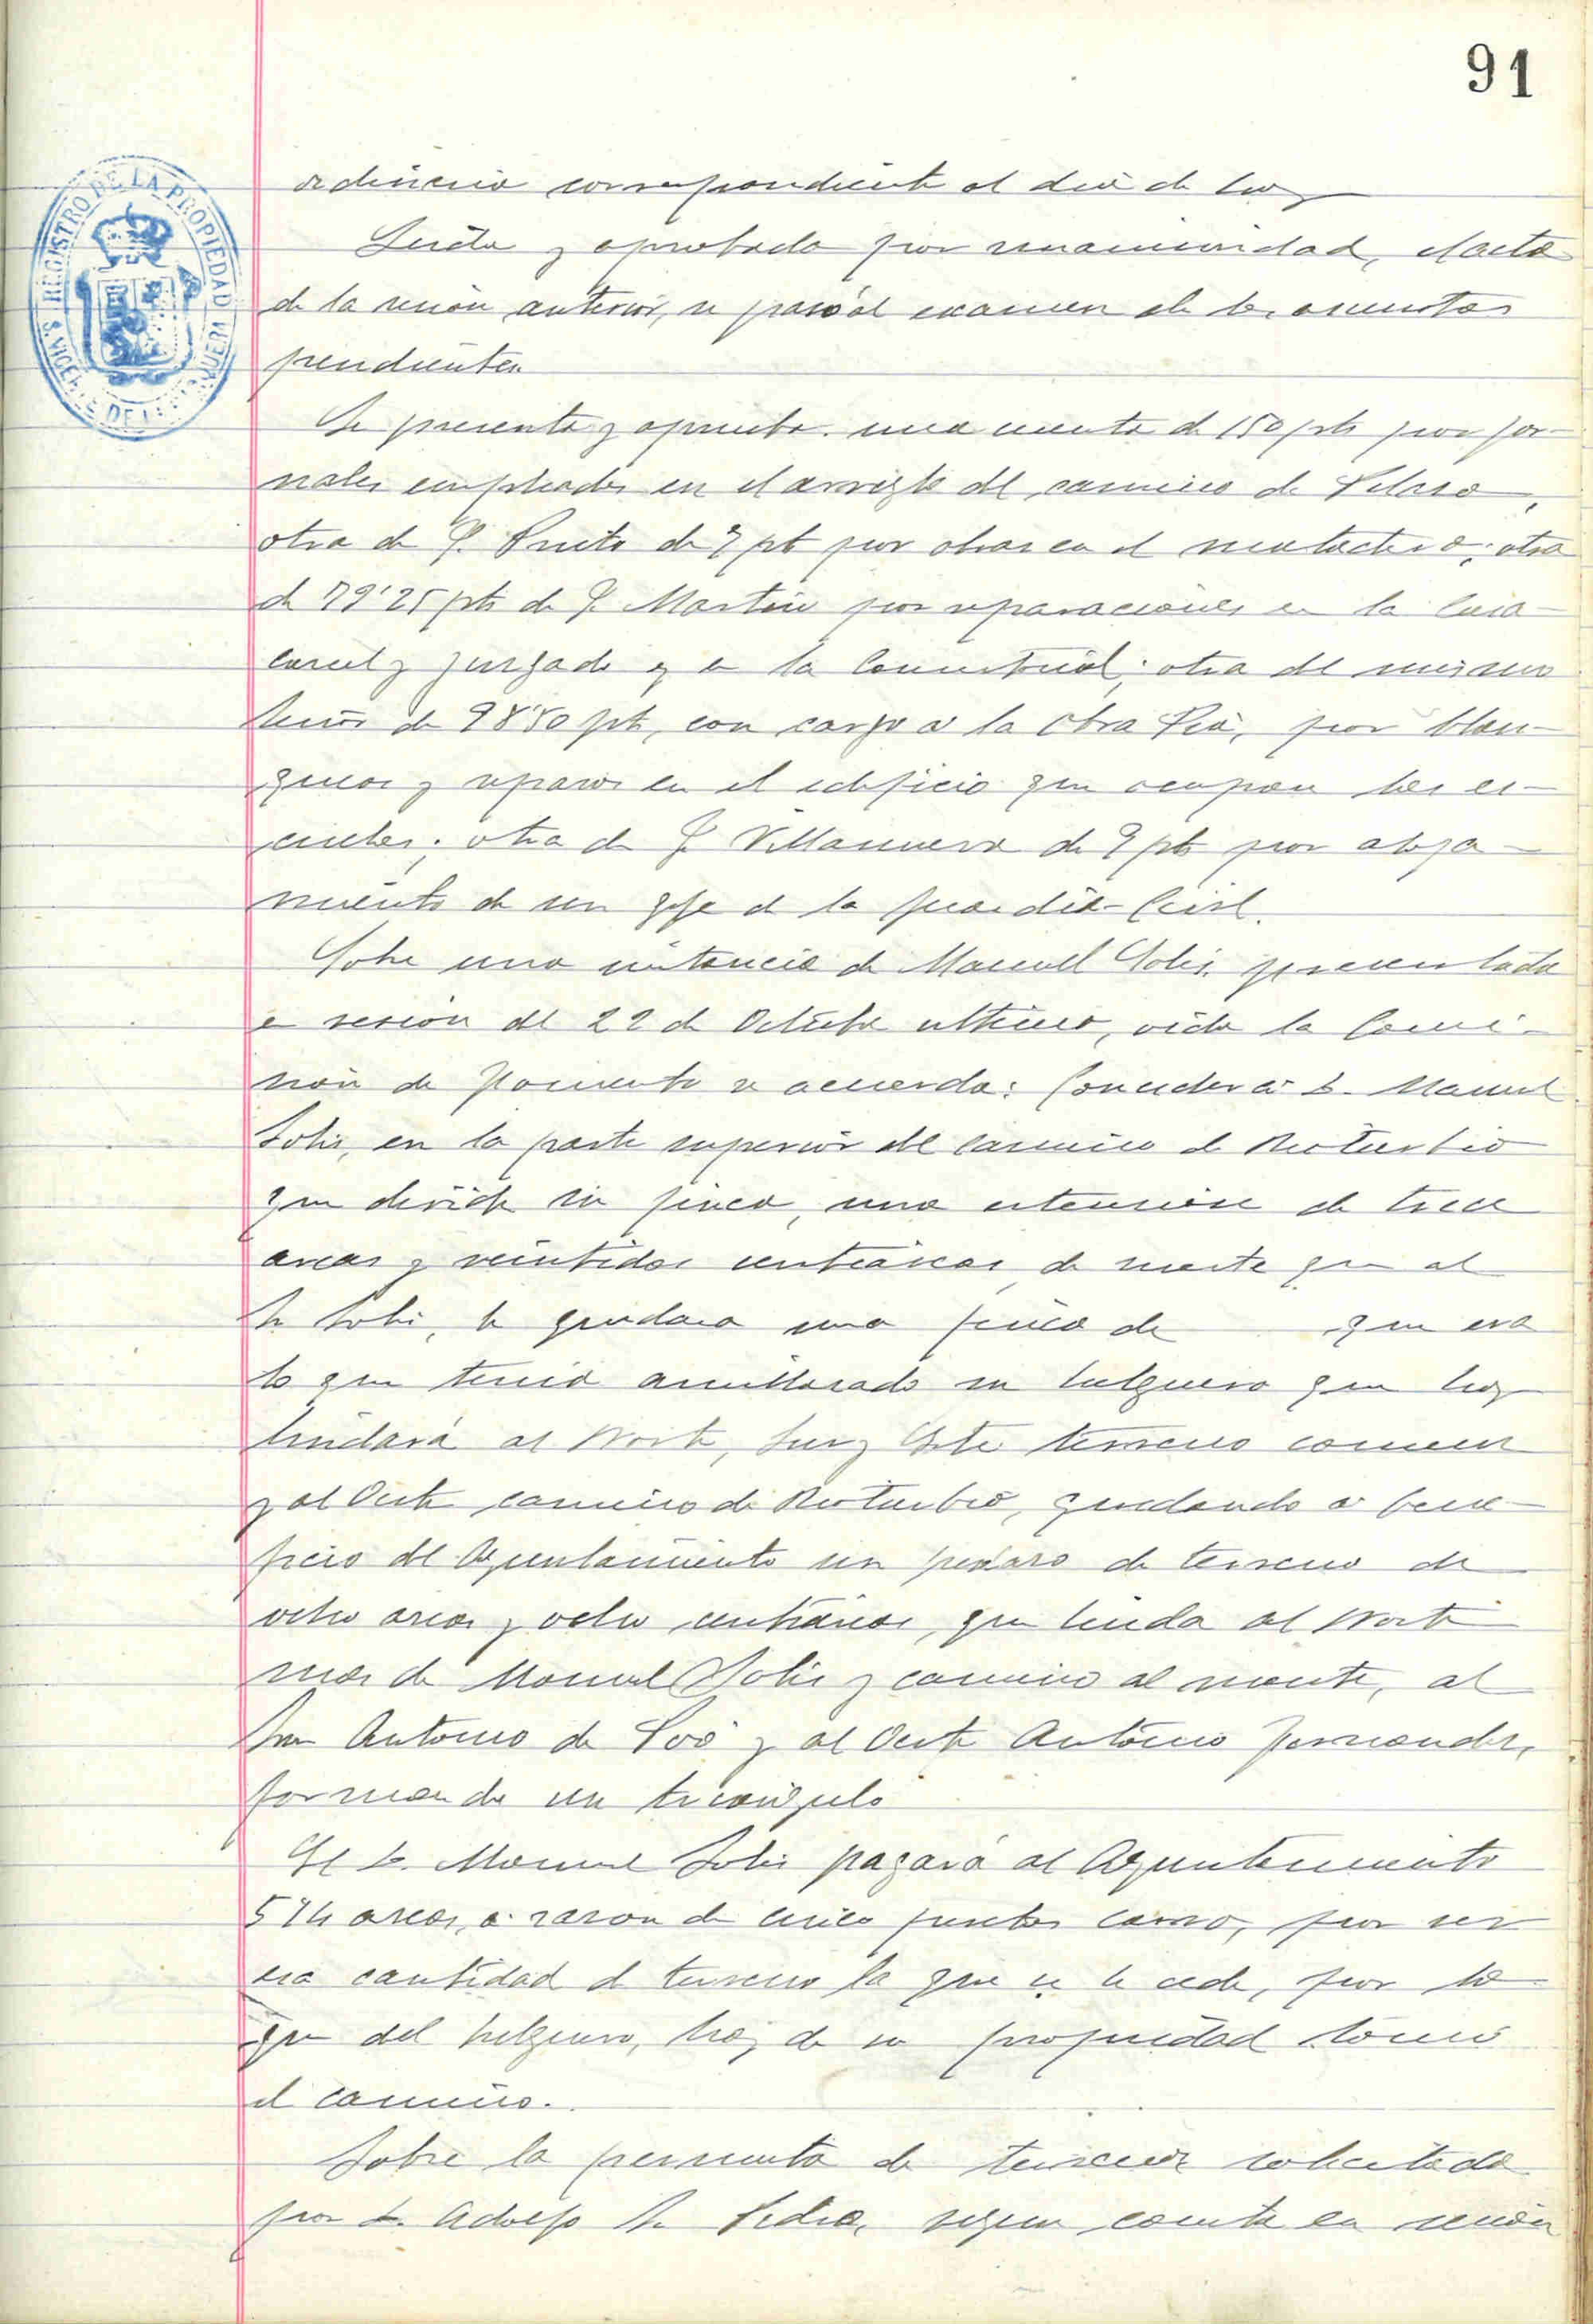 91
REGISTRO DE LA PROPIEDAD
S. VICENTE DE LA BARQUERA
ordinaria correspondiente al dia de hoy
Leida y aprobada por unanimidad, el acta
de la sesión anterior, se pasó al examen de los asuntos
pendientes.
Se presenta y aprueba una cuenta de 150 pts por jor-
nales empleados en el arreglo del camino de
otra de Prieto de pts por obras en el matadero; otra
de 79'25 pts de J. Martin por reparaciones en la Casa
carcel y juzgado y en la Consistorial; otra del mismo
Señor de pts, con cargo a la Obra Pia, por blan-
queos y reparos en el edificio que ocupan las es-
cuelas; otra de J. Villanueva de pts por aloja-
miento de un gefe de la guardia Civil.
Sobre una instancia de Manuel Solis, presentada
en sesion del 22 de Octubre ultimo, oida la Comi-
sión de Fomento se acuerda: Conceder a D. Manuel
Solis, en la parte superior del camino de Rioturbio
que divide su finca, una extension de trece
areas y veintidos centiareas de monte que al
Sr Solis, le quedara una finca de que era
lo que tenia amillarado su helguero que hoy
lindará al Norte, Sur y Este terreno comun
y al Oeste camino de Rioturbio, quedando a bene-
ficio del Ayuntamiento un pedazo de terreno de
ocho areas y ocho centiareas, que linda al Norte
mas de Manuel Solis y camino al monte, al
Sur Antonio de Poó y al Oeste Antonio Fernandez,
formando un triangulo
El D. Manuel Solis pagará al Ayuntamiento
514 areas, a razon de cinco pesetas carro, por ser
esa cantidad de terreno la que se le cede, por lo
que del helguero, hoy de su propiedad tomó
el camino.
Sobre la permuta de terreno solicitada
por D. Adolfo de la Pedra, segun consta en sesión